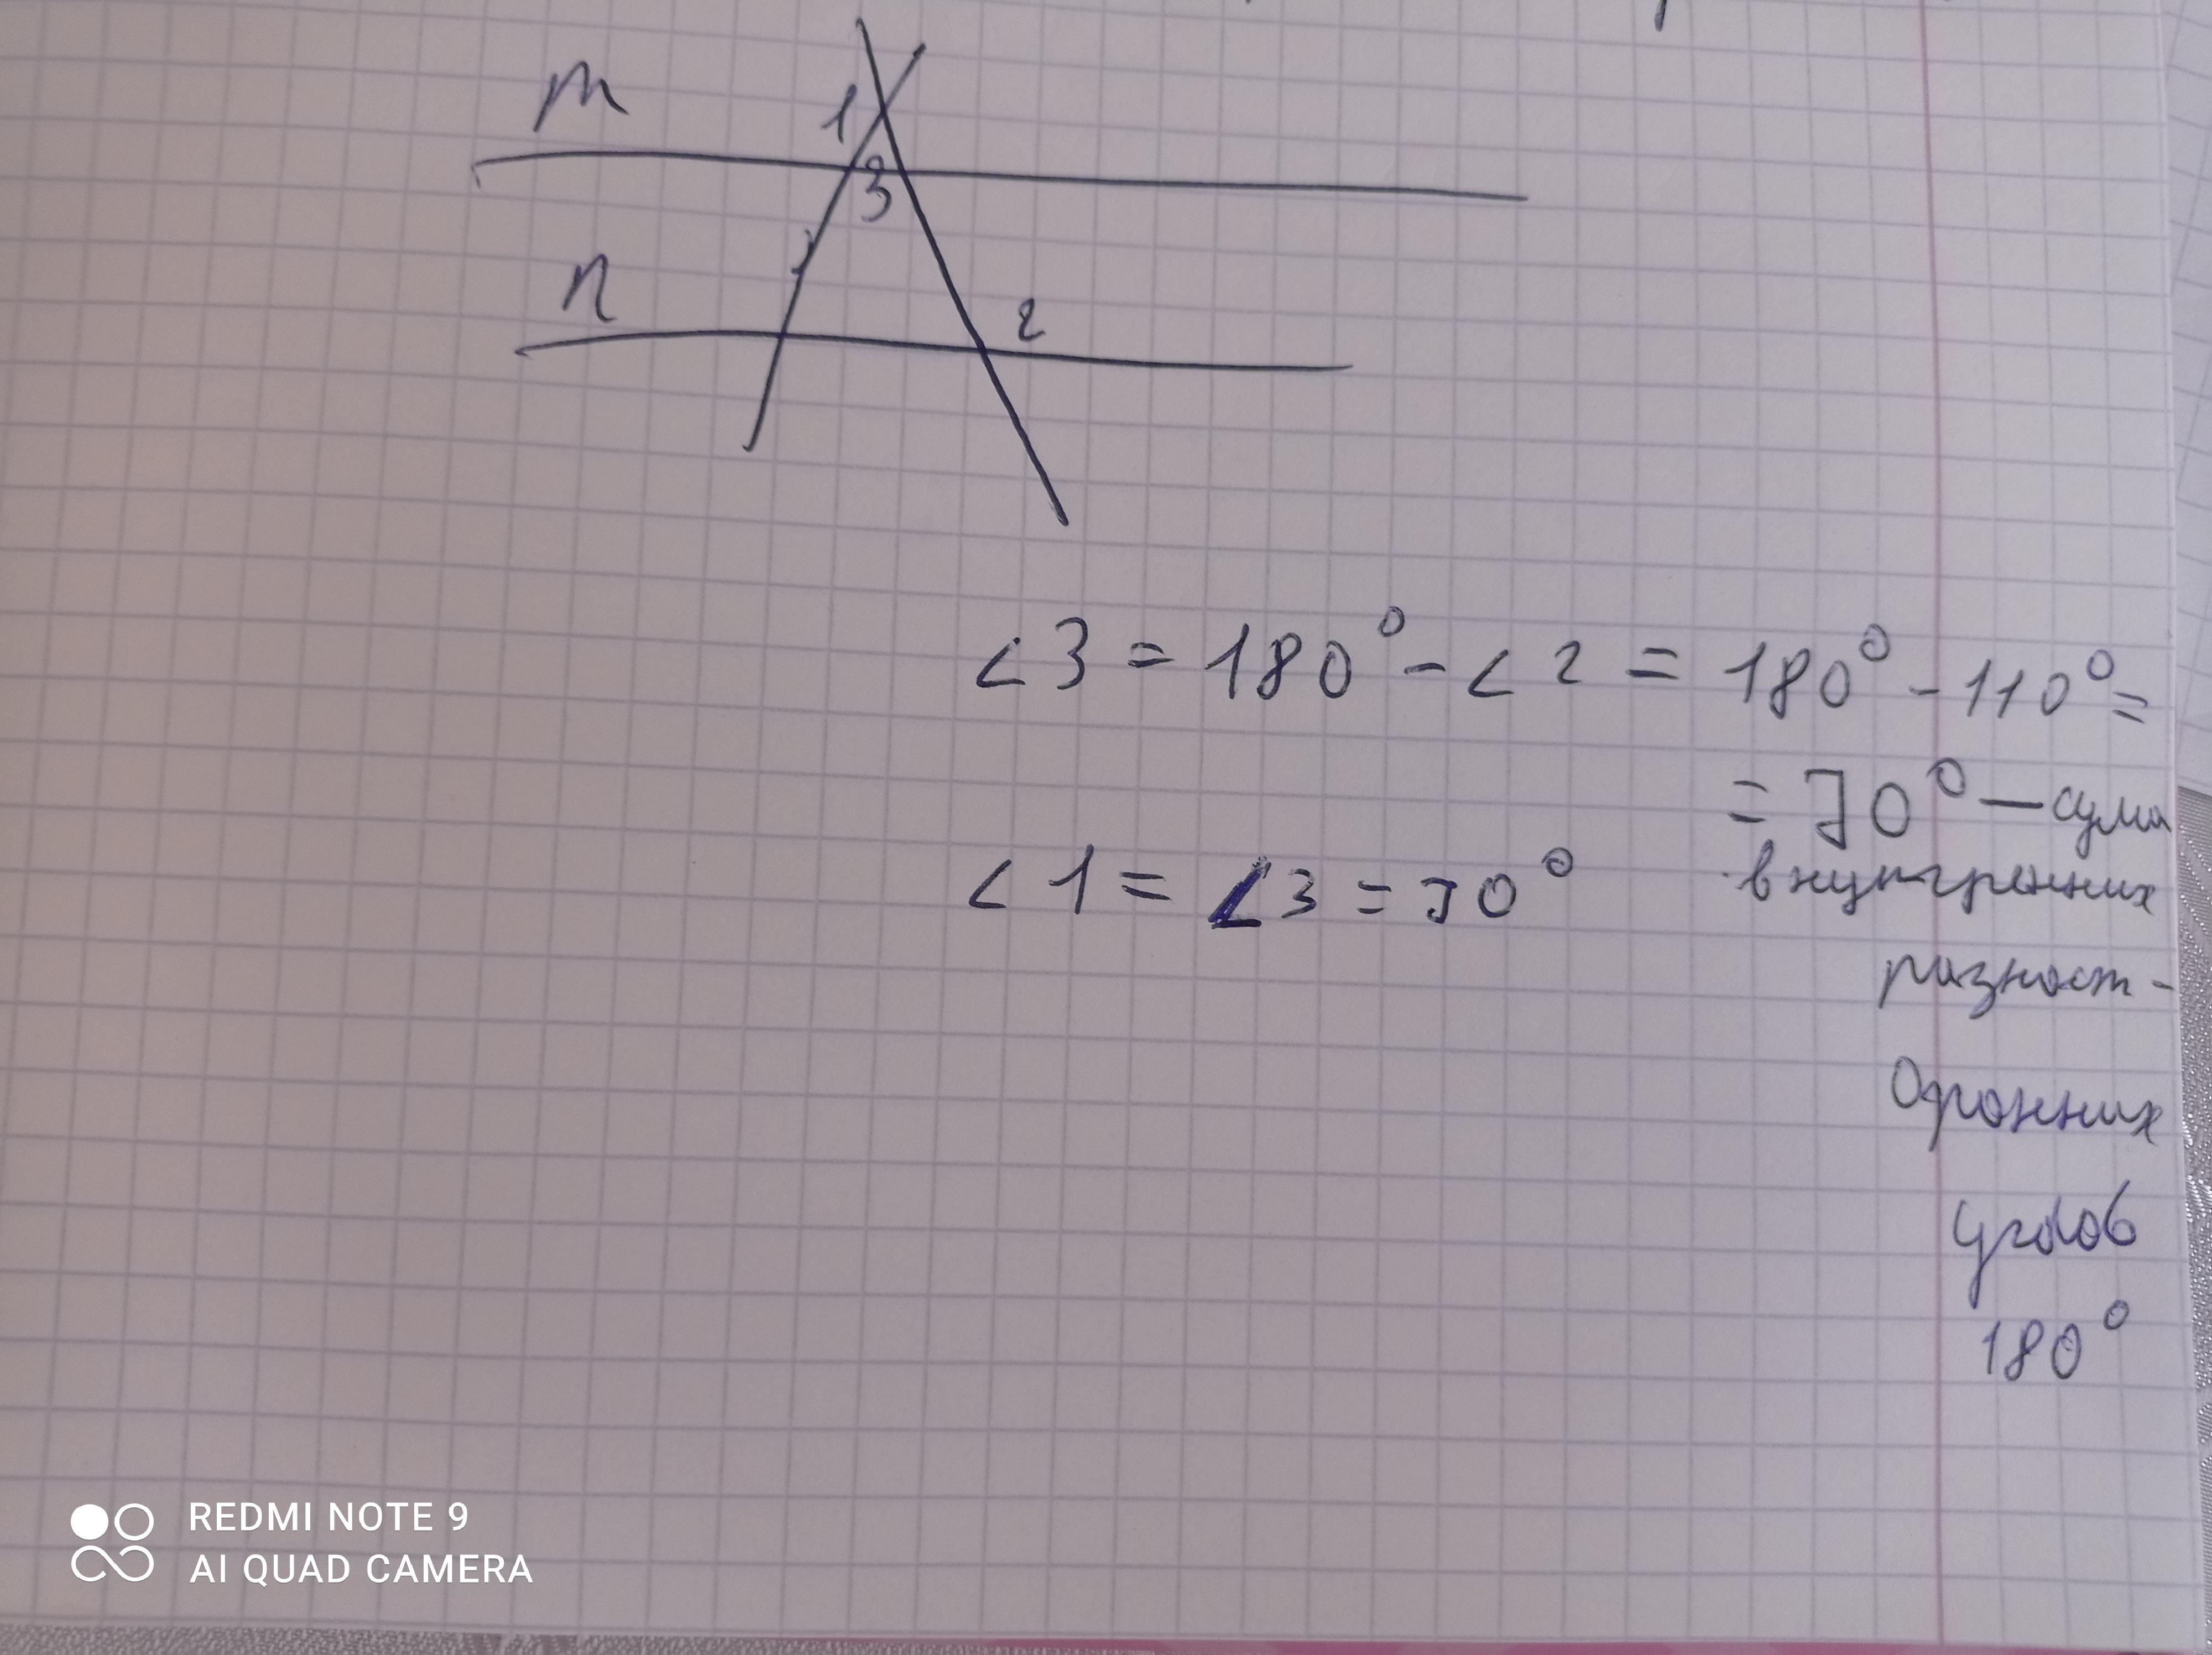 m
1
3
n
2
∠3 = 180° - ∠2 = 180° - 110° =
= 70° — сума
внутренних
∠1 = ∠3 = 70°
разност-
оронних
углов
180°
REDMI NOTE 9
AI QUAD CAMERA